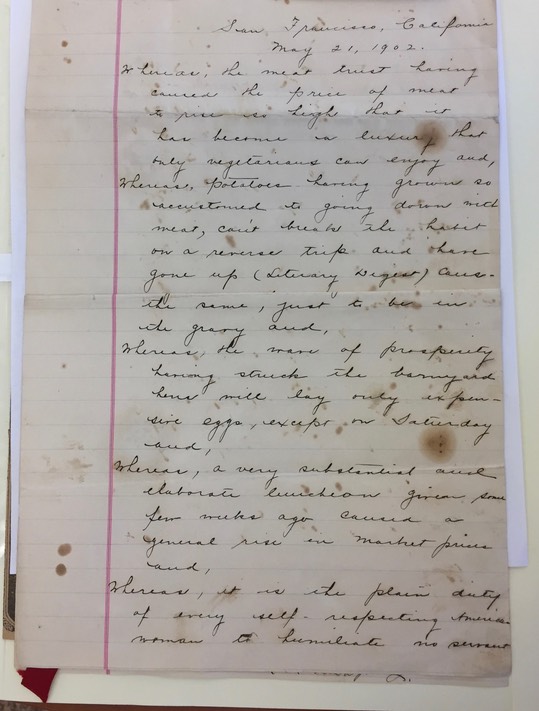 San Francisco, California
May 21, 1902.
Whereas, the meat trust having
caused the price of meat
to rise so high that it
has become a luxury that
only vegetarians can enjoy and,
Whereas, potatoes having grown so
accustomed to going down with
meat, can't break the habit
on a reverse trip and have
gone up (Literary Digest) Caus-
the same, just to be in
the gravy and,
Whereas, the wave of prosperity
having struck the barnyard
hens will lay only expen-
sive eggs, except on Saturday
and,
Whereas, a very substantial and
elaborate luncheon given some
few weeks ago caused a
general rise in market prices
and,
Whereas, it is the plain duty
of every self-respecting America
woman to humiliate no servant